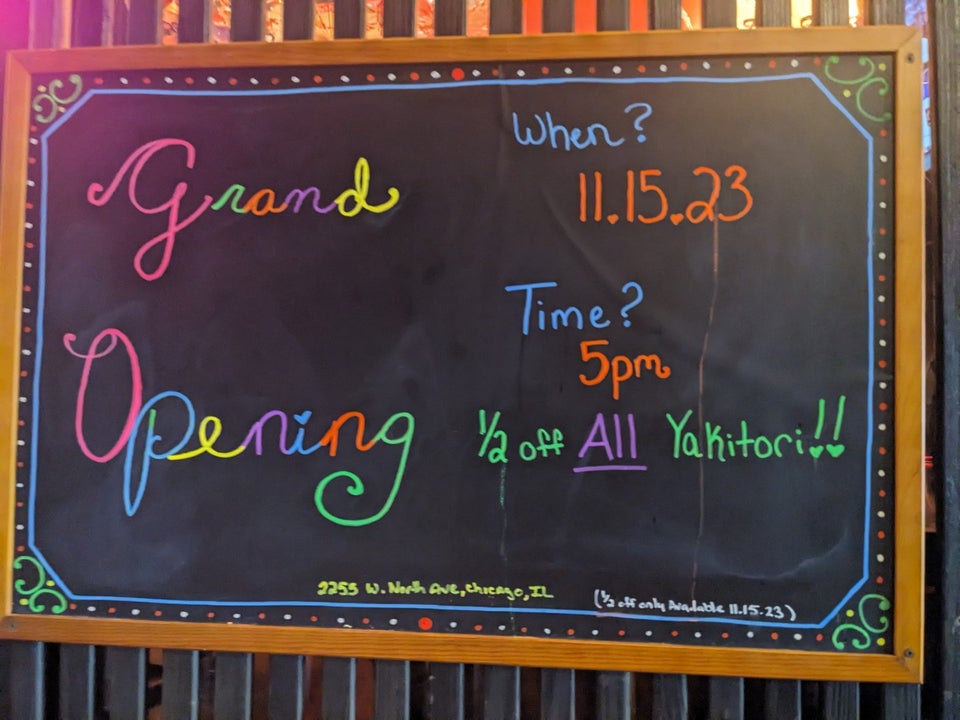 Grand
Opening
When?
11.15.23
Time?
5pm
1/2 off All Yakitori!!
2255 W. North Ave, Chicago, IL
(1/2 off only Available 11.15.23)